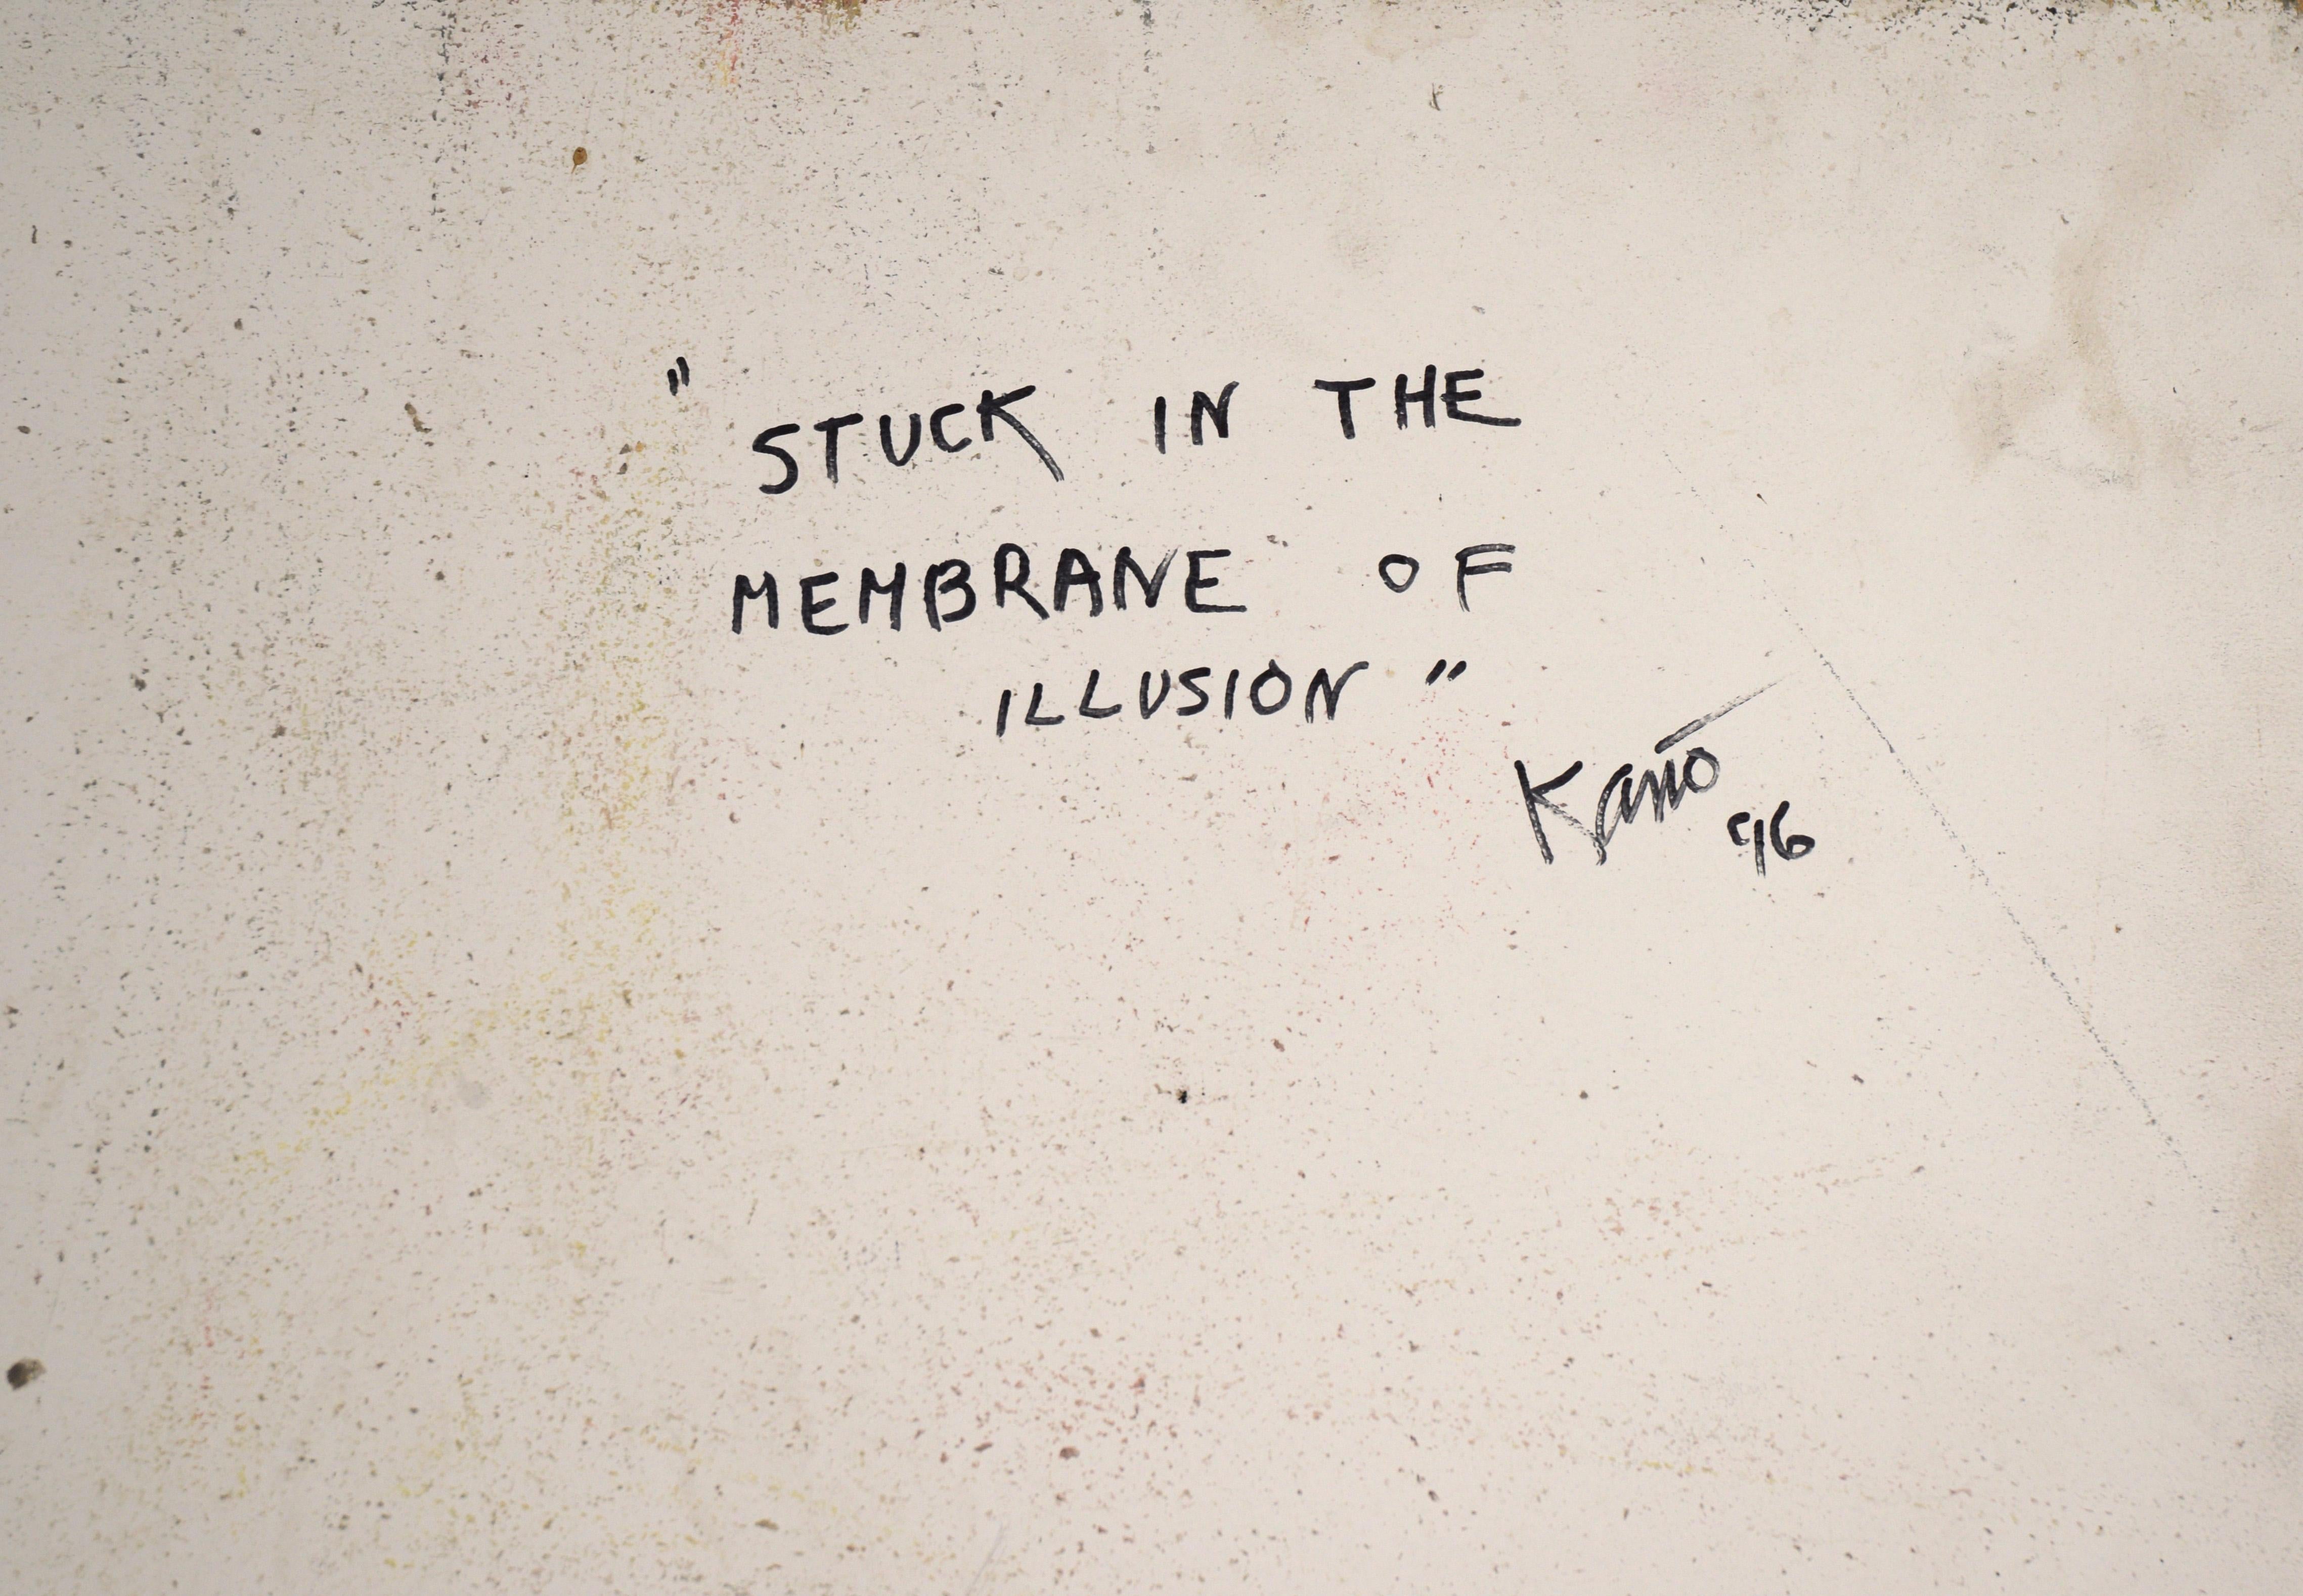 "STUCK IN THE
MEMBRANE OF
ILLUSION"
Kanō
96